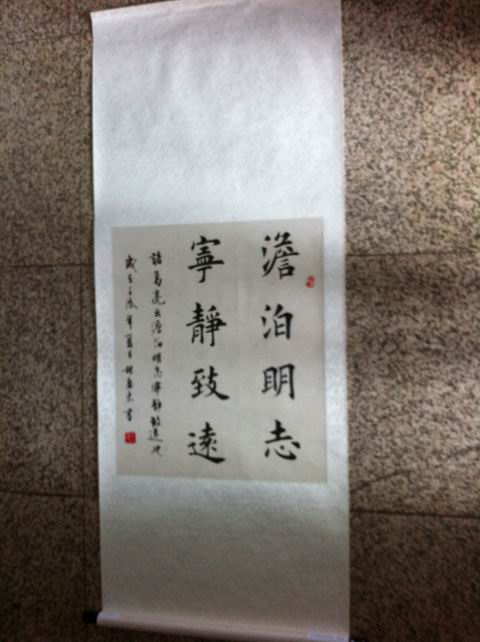 澹泊明志
寧靜致遠
諸葛亮云澹泊明志寧靜致遠也
歲在年夏月書